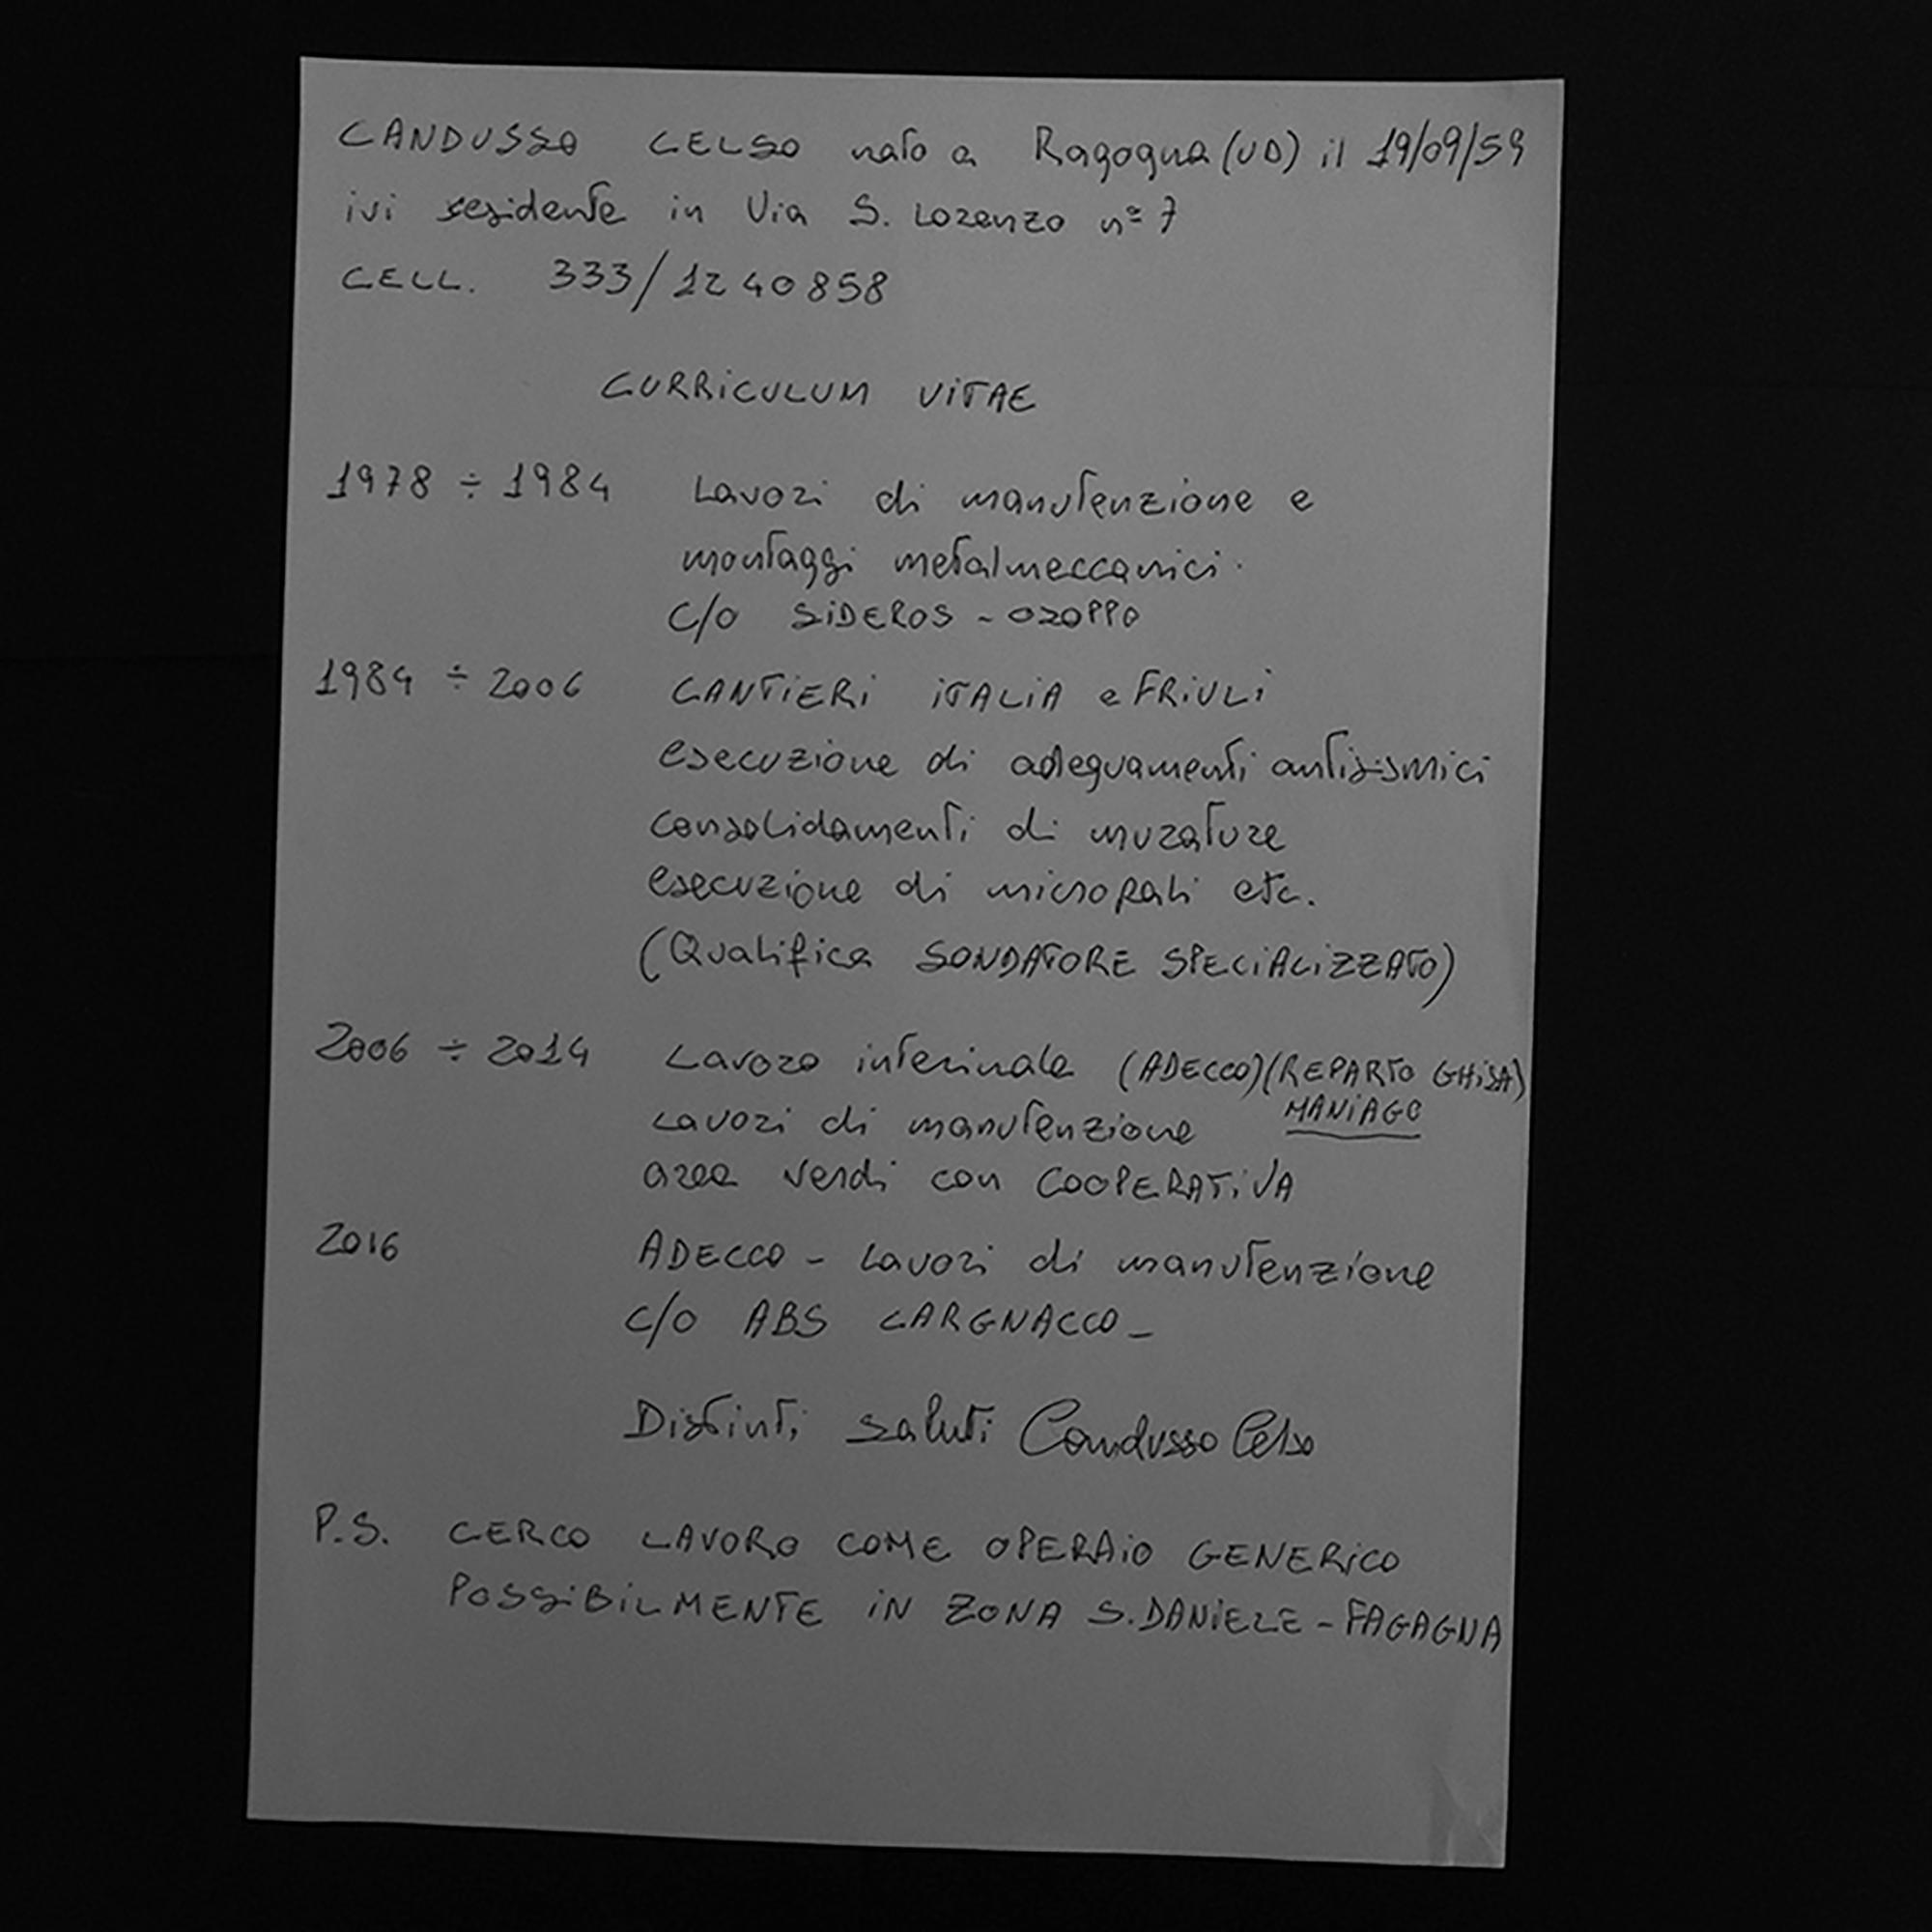 CANDUSSO CELSO nato a Ragogna (UD) il 19/09/59
ivi residente in Via S. Lorenzo n° 7
CELL. 333/1240858
CURRICULUM VITAE
1978 ÷ 1984 Lavori di manutenzione e
montaggi metalmeccanici.
c/o SIDEROS - OSOPPO
1984 ÷ 2006 CANTIERI ITALIA e FRIULI
esecuzione di adeguamenti antisismici
consolidamenti di murature
esecuzione di micropali etc.
(Qualifica SONDATORE SPECIALIZZATO)
2006 ÷ 2014 Lavoro interinale (ADECCO) (REPARTO GHISA)
MANIAGO
Lavori di manutenzione
area verdi con COOPERATIVA
2016 ADECCO - Lavori di manutenzione
c/o ABS CARGNACCO -
Distinti saluti Candusso Celso
P.S. CERCO LAVORO COME OPERAIO GENERICO
POSSIBILMENTE IN ZONA S. DANIELE - FAGAGNA